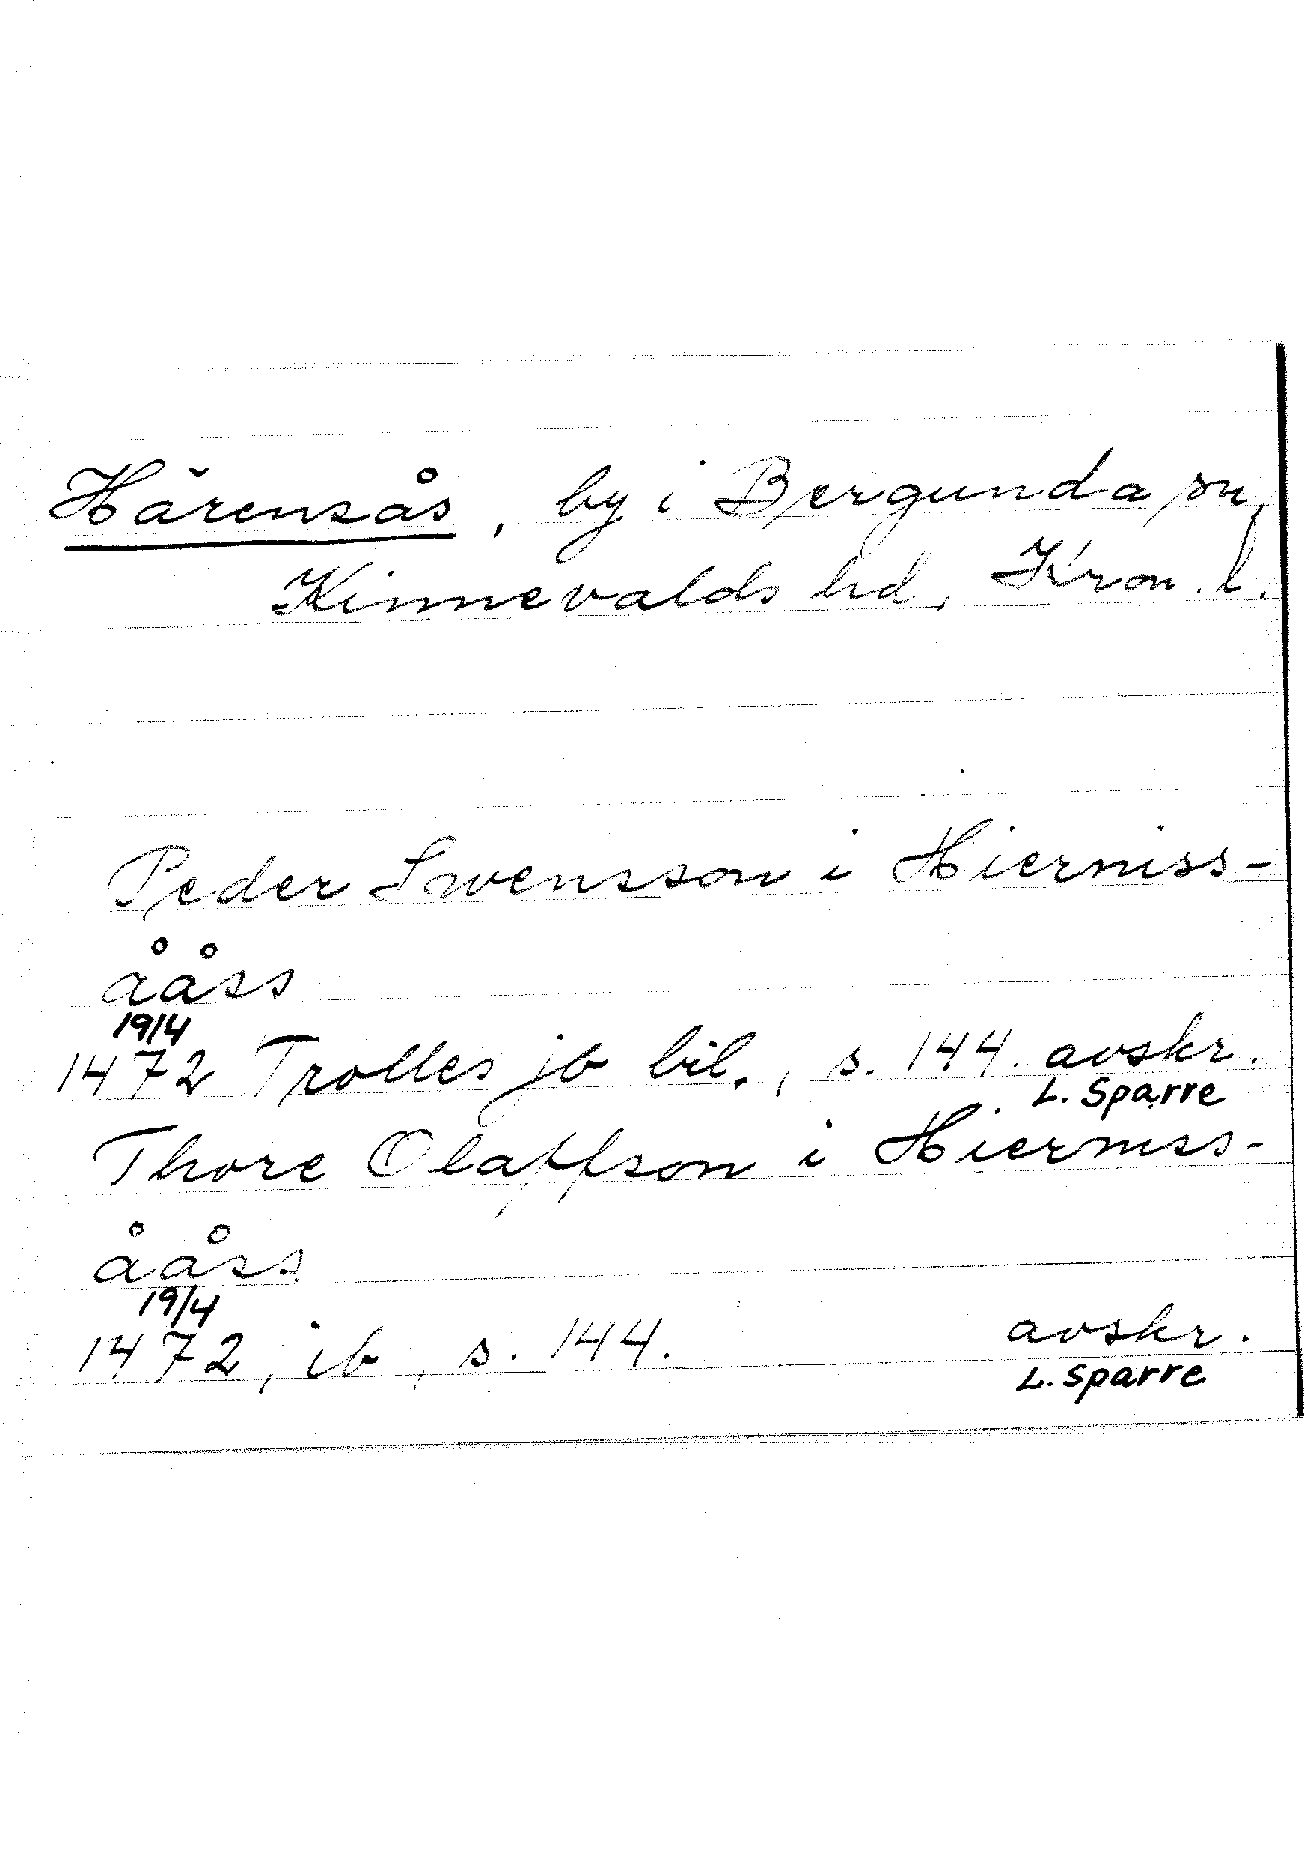 Härensås, by i Bergunda sn,
Kinnevalds hd, Kron. l.
Peder Swensson i Hierniss-
ååss
19/4
1472 Trolles jb bil., s. 144. avskr.
L. Sparre
Thore Olaffson i Hierniss-
ååss
19/4
1472, ib, s. 144. avskr.
L. Sparre